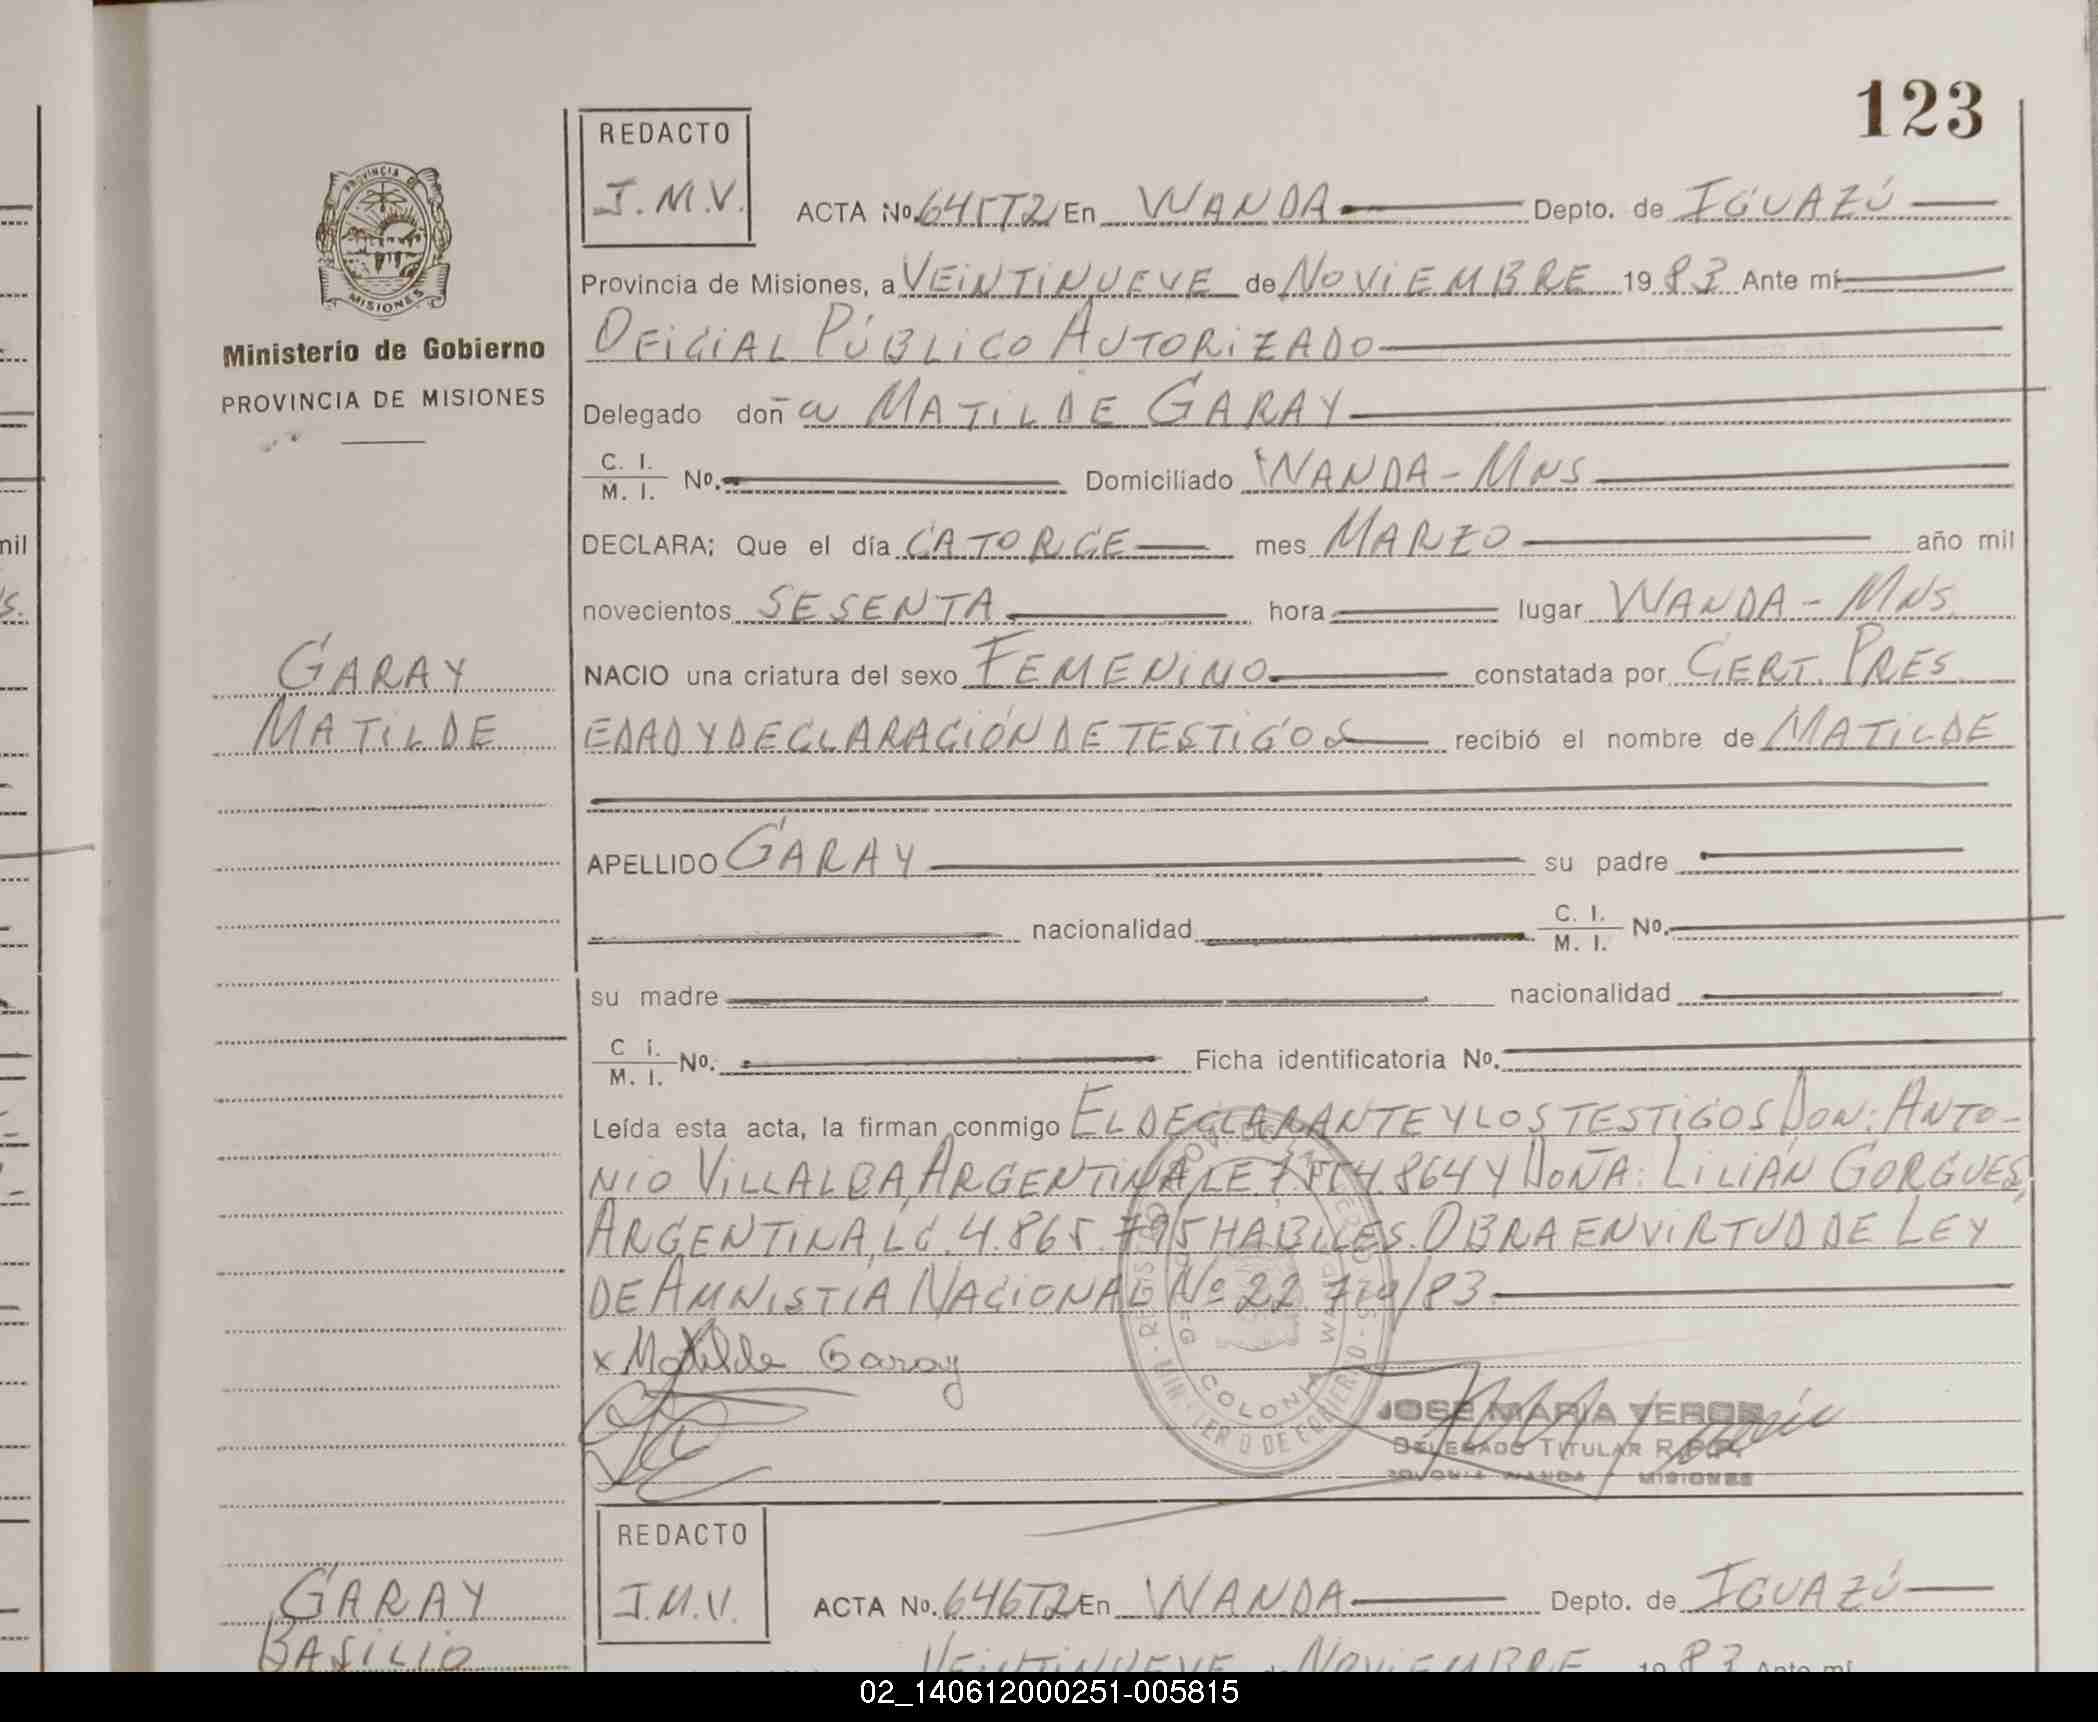 123
REDACTO
J.M.V.
PROVINCIA DE
MISIONES
Ministerio de Gobierno
PROVINCIA DE MISIONES
ACTA No. 645T2 En WANDA Depto. de IGUAZÚ
Provincia de Misiones, a VEINTINUEVE de NOVIEMBRE 1983 Ante mí
OFICIAL PÚBLICO AUTORIZADO
Delegado doña MATILDE GARAY
C. I. / M. I. No. Domiciliado WANDA-MNS
DECLARA; Que el día CATORCE mes MARZO año mil
novecientos SESENTA hora lugar WANDA-MNS.
GARAY
MATILDE
NACIO una criatura del sexo FEMENINO constatada por CERT. PRES
EDAD Y DECLARACIÓN DE TESTIGOS recibió el nombre de MATILDE
APELLIDO GARAY su padre
nacionalidad C. I. / M. I. No.
su madre nacionalidad
C I. / M. I. No. Ficha identificatoria No.
Leída esta acta, la firman conmigo EL DECLARANTE Y LOS TESTIGOS DON: ANTO-
NIO VILLALBA, ARGENTINA, LE. 864 Y DOÑA: LILIÁN GORGUES,
ARGENTINA, LC. 4.865.795 HABILES. OBRA EN VIRTUD DE LEY
DE AMNISTÍA NACIONAL Nº 22. /83.
x Matilde Garay
COLONIA
JOSE MARIA
DELEGADO TITULAR R.P.P.
COLONIA WANDA - MISIONES
REDACTO
J.M.V.
GARAY
BASILIO
ACTA No. 646T2 En WANDA Depto. de IGUAZÚ
VEINTINUEVE NOVIEMBRE 1983 Ante mí
nil
02_140612000251-005815